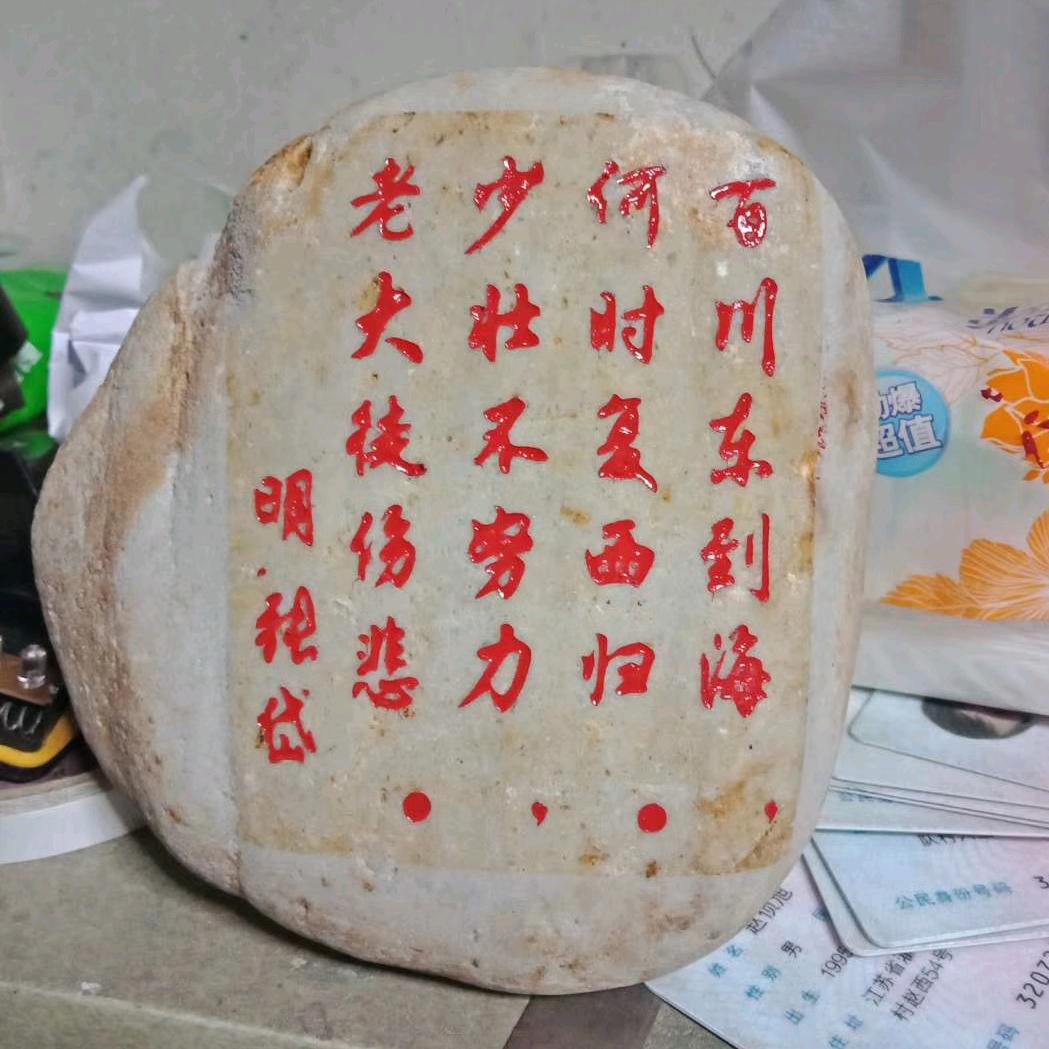 百川东到海，
何时复西归。
少壮不努力，
老大徒伤悲。
明·张岱
超值
公民身份号码
姓名
性别 男
出生 199
住址 江苏省
村赵西54号
号码 3207